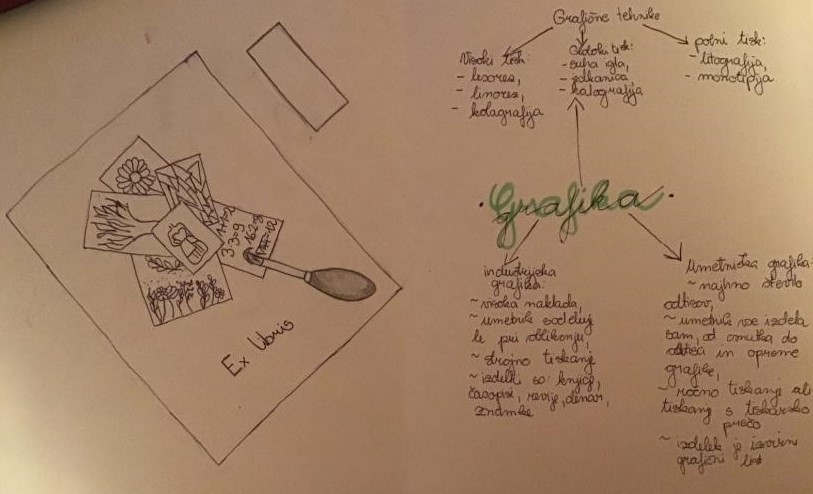 Grafične tehnike
Visoki tisk:
- lesorez,
- linorez,
- kolagrafija
Globoki tisk:
- suha igla,
- jedkanica
- kalografija
ploski tisk:
- litografija,
- monotipija
• Grafika •
industrijska
grafika:
~ visoka naklada,
~ umetnik sodeluj
le pri oblikovanju,
~ strojno tiskanje
~ izdelki so: knjige,
časopisi, revije, denar,
znamke
Umetniška grafika:
~ majhno število
odtisov,
~ umetnik vse izdela
sam, od osnutka do
odtisa in opreme
grafike,
~ ročno tiskanje ali
tiskanje s tiskarsko
prešo
~ izdelek je izvirni
grafični list
1+1=2
3·3=9
16:2=8
Ex libris